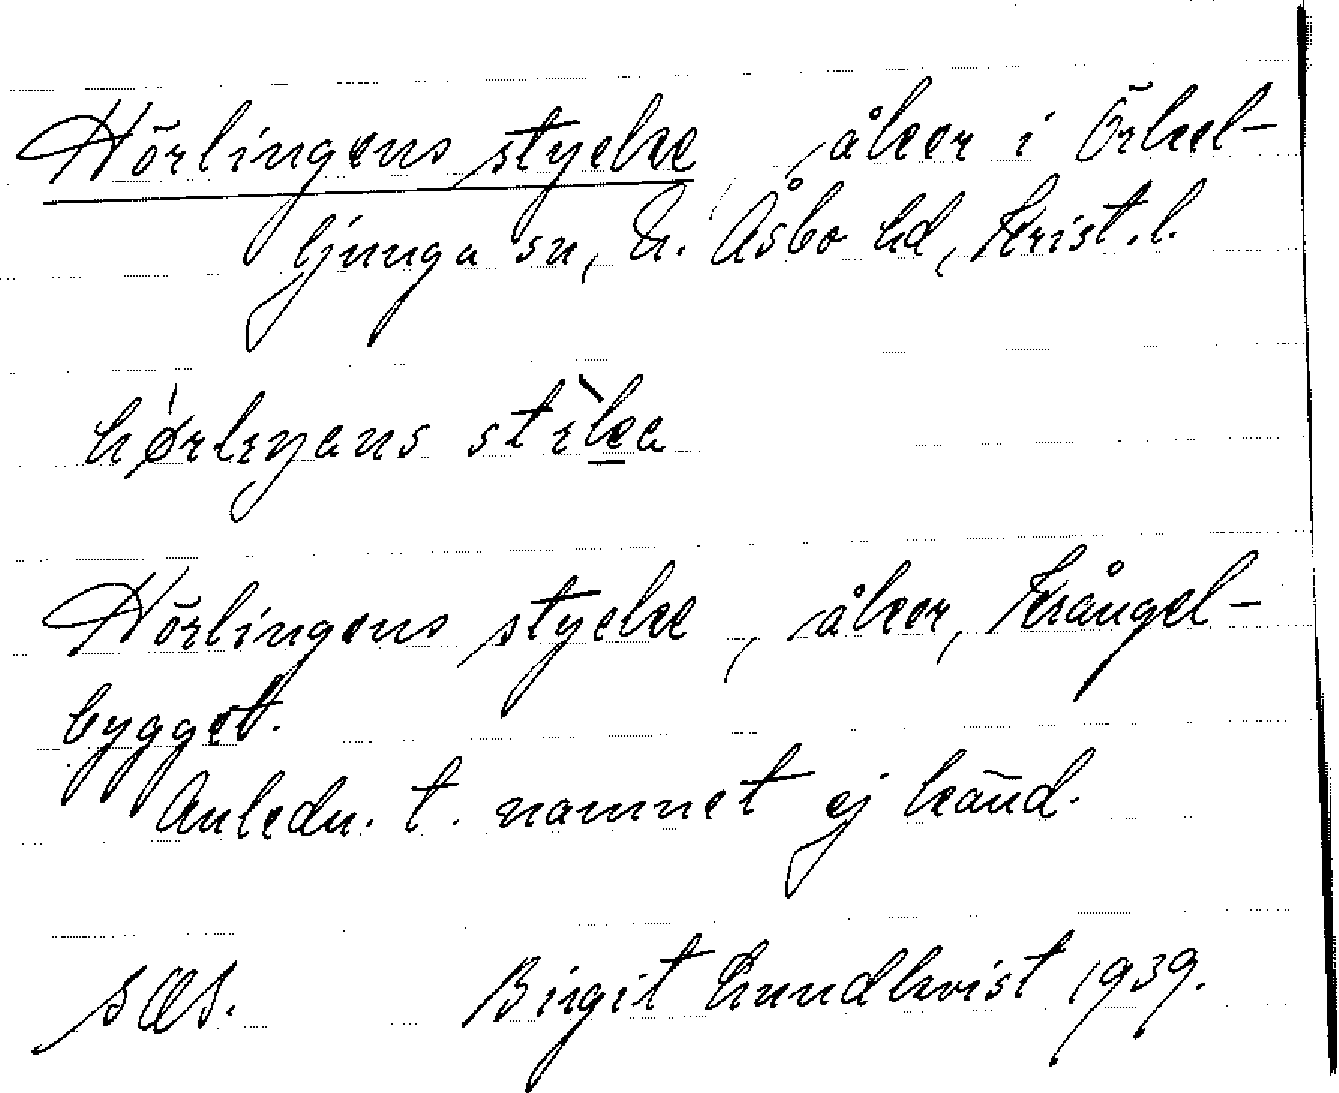 Hörlingens stycke, åker i Örkel-
ljunga sn, N. Åsbo hd, Krist. l.
hørlıŋans stìka
Hörlingens stycke, åker, Krångel-
bygget.
Anledn. t. namnet ej känd.
sæs. Birgit Lundkvist 1939.